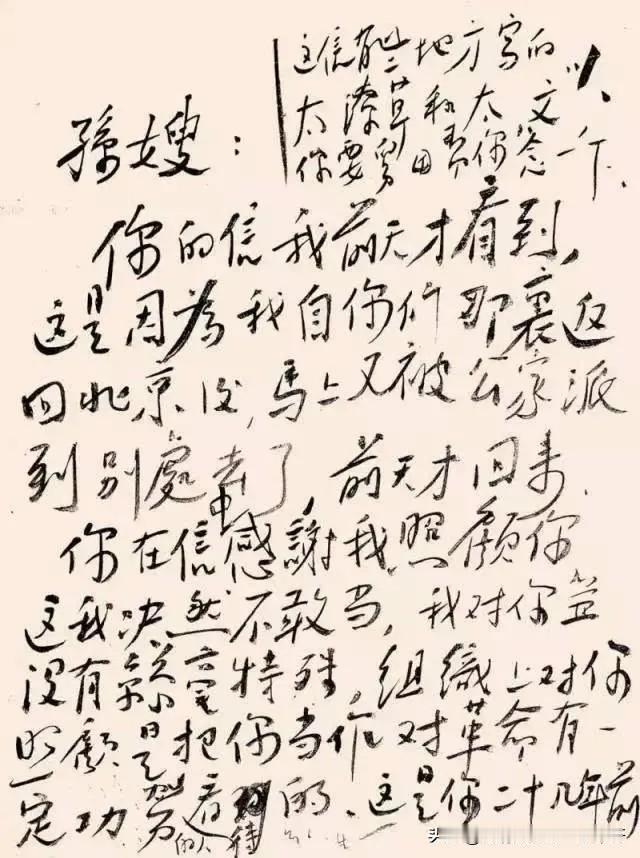 这信有些地方写的
太潦草和太文
你要你念一下
孫嫂：
你的信我前天才看到，
这是因為我自你们那裏返
回北京後，馬上又被公家派
到别處去了，前天才回来.
你在信中感謝我照顧你
这我决然不敢当，我对你並
没有特殊，组織上对你
照顧是把你当作对革命有一
定功劳的人看待的。这是你二十几年前